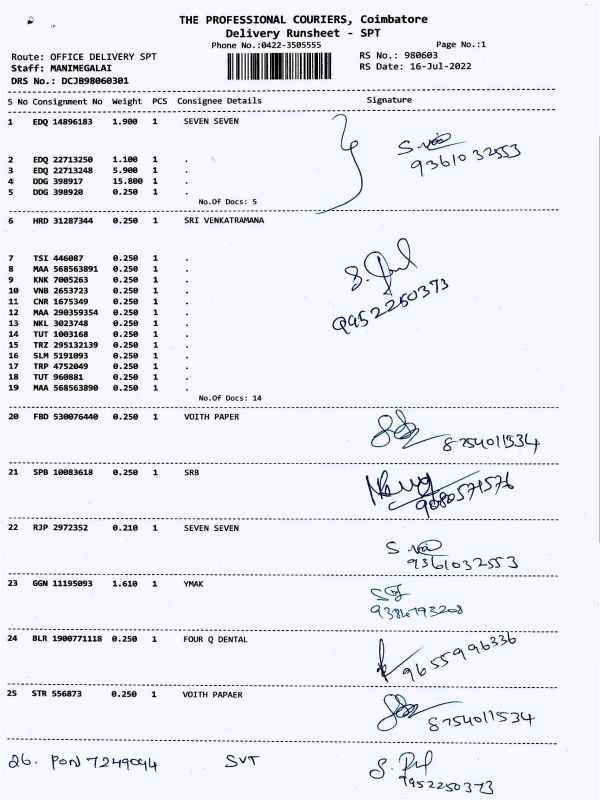 THE PROFESSIONAL COURIERS, Coimbatore
Delivery Runsheet - SPT
Phone No.:0422-3505555 Page No.:1
Route: OFFICE DELIVERY SPT RS No.: 980603
Staff: MANIMEGALAI RS Date: 16-Jul-2022
DRS No.: DCJB98060301
S No Consignment No Weight PCS Consignee Details Signature
1 EDQ 14896183 1.900 1 SEVEN SEVEN
9361032553
2 EDQ 22713250 1.100 1 .
3 EDQ 22713248 5.900 1 .
4 DDG 398917 15.800 1 .
5 DDG 398920 0.250 1 .
No.Of Docs: 5
6 HRD 31287344 0.250 1 SRI VENKATRAMANA
7 TSI 446087 0.250 1 .
8 MAA 568563891 0.250 1 .
9 KNK 7005263 0.250 1 .
10 VNB 2653723 0.250 1 .
11 CNR 1675349 0.250 1 .
9952250373
12 MAA 290359354 0.250 1 .
13 NKL 3023748 0.250 1 .
14 TUT 1003168 0.250 1 .
15 TRZ 295132139 0.250 1 .
16 SLM 5191093 0.250 1 .
17 TRP 4752049 0.250 1 .
18 TUT 960881 0.250 1 .
19 MAA 568563890 0.250 1 .
No.Of Docs: 14
20 FBD 530076440 0.250 1 VOITH PAPER
8754011534
21 SPB 10083618 0.250 1 SRB
9080571576
22 RJP 2972352 0.210 1 SEVEN SEVEN
9361032553
23 GGN 11195093 1.610 1 YMAK
9384793208
24 BLR 1900771118 0.250 1 FOUR Q DENTAL
9655996336
25 STR 556873 0.250 1 VOITH PAPAER
8754011534
26. PON 7249094 SVT
9952250373